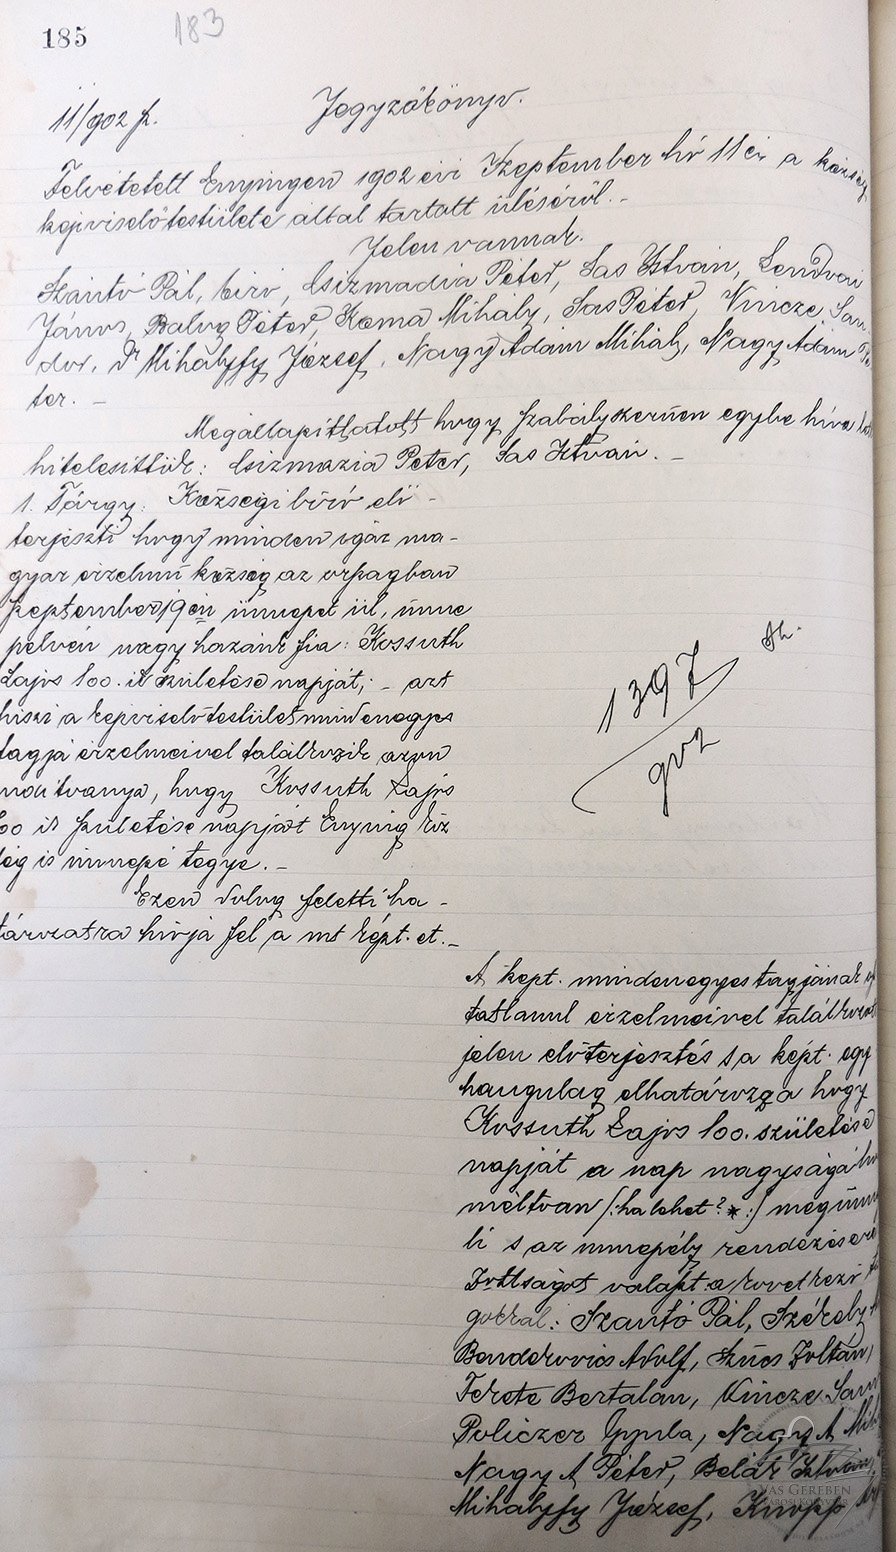 185
183
11/902 k.
Jegyzőkönyv.
Felvétetett Enyingen 1902 évi Szeptember hó 11 én a község
képviselőtestülete által tartott üléséről.-
Jelen vannak.
Szántó Pál, biró, Csizmadia Péter, Sas István, Lendvai
János, Balog Péter, Koma Mihály, Sas Péter, Vincze Sán-
dor, Dr Mihályfy József, Nagy Ádám Mihály, Nagy Ádám Pé
ter. -
Megállapíttatott hogy szabályszerűen egybe híva
hitelesittük: Csizmazia Péter, Sas István. -
1. Tárgy. Községi bíró elő-
terjeszti hogy minden igaz ma-
gyar érzelmű község az országban
szeptember 19 én ünnepet ül, ünne
pelvén nagy hazánk fia: Kossuth
Lajos 100. ik születése napját; - azt
hiszi a képviselőtestület mindenegyes
tagja érzelmeivel találkozik azon
inditványa, hogy Kossuth Lajos
100 ik születése napját Enying köz
ség is ünnepé tegye. -
Ezen dolog feletti ha-
tározatra hívja fel a mt képt. et. -
1397
902
A képt. mindenegyes tagjának
tatlanul érzelmeivel találkozott
jelen előterjesztés s a képt. egy
hangulag elhatározza hogy
Kossuth Lajos 100. születése
napját a nap nagyságához
méltóan /:ha lehet? * :/ megünne
li s az ünnepély rendezésére
Bottságot választ a következő
gokkal: Szántó Pál, Székely
Benderovics Adolf, Szűcs Zoltán,
Fekete Bertalan, Vincze Sán
Policzer Gyula, Nagy Á Mih
Nagy Á Péter, Belák István,
Mihályfy József, Knopp
VAS GEREBEN
VÁROSI KÖNYVTÁR